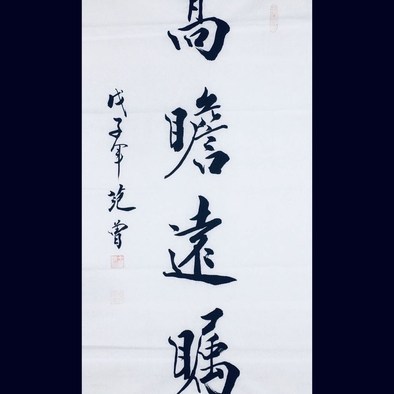 高瞻遠瞩
戊子年范曾